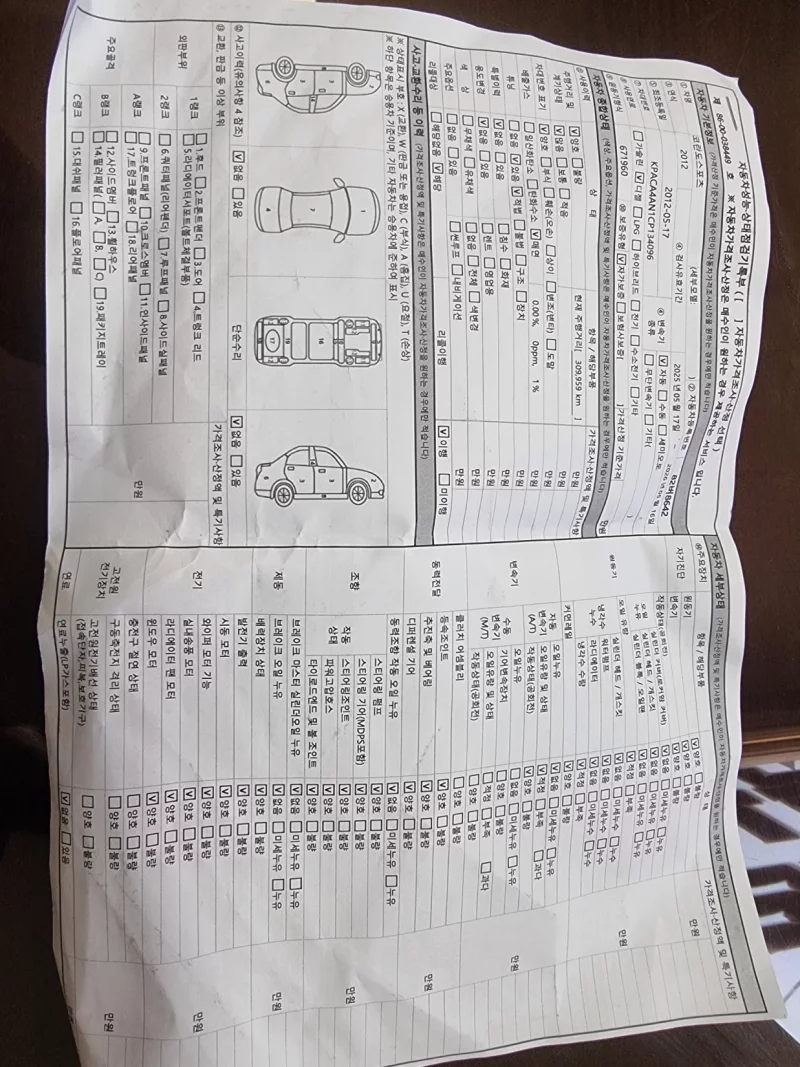 자동차성능·상태점검기록부 ([ ] 자동차가격조사·산정 선택 )
제 86-00-038449 호 ※ 자동차가격조사·산정은 매수인이 원하는 경우 제공하는 서비스 입니다.
자동차 기본정보 (가격산정 기준가격은 매수인이 자동차가격조사·산정을 원하는 경우에만 적습니다)
① 차명 코란도스포츠 (세부모델: ) ② 자동차등록번호
③ 연식 2012 ④ 검사유효기간 2025 년 05 월 17일 ~
⑤ 최초등록일 2012-05-17 변속기 종류 V 자동 수동 세미오토
⑥ 차대번호 KPACA4AN1CP134096 무단변속기 기타( )
가솔린 V 디젤 LPG 하이브리드 전기 수소전기 기타
⑨ 원동기형식 671960 ⑩ 보증유형 V 자가보증 보험사보증 가격산정 기준가격 만원
자동차 종합상태 (색상, 주요옵션, 가격조사·산정액 및 특기사항은 매수인이 자동차가격조사·산정을 원하는 경우에만 적습니다)
⑪ 사용이력 상 태 항목 / 해당부품 가격조사·산정액 및 특기사항
주행거리 및 계기상태 V 양호 불량 현재 주행거리 [ 309,959 km ] 만원
많음 V 보통 적음 만원
차대번호 표기 V 양호 부식 훼손(오손) 상이 변조(변타) 도말 만원
배출가스 일산화탄소 탄화수소 V 매연 0.00% 0ppm, 1% 만원
튜닝 없음 V 있음 V 적법 불법 구조 장치 만원
특별이력 V 없음 있음 침수 화재 만원
용도변경 V 없음 있음 렌트 영업용 만원
색 상 무채색 유채색 없음 전체 색변경 만원
주요옵션 없음 있음 썬루프 내비게이션 만원
리콜대상 해당없음 V 해당 리콜이행 V 이행 미이행
사고·교환·수리 등 이력 (가격조사·산정액 및 특기사항은 매수인이 자동차가격조사·산정을 원하는 경우에만 적습니다)
※ 상태표시 부호 : X (교환), W (판금 또는 용접), C (부식), A (흠집), U (요철), T (손상)
※ 하단 항목은 승용차 기준이며, 기타 자동차는 승용차에 준하여 표시
⑫ 사고이력(유의사항 4 참조) V 없음 있음 단순수리 V 없음 있음
⑬ 교환, 판금 등 이상 부위 가격조사·산정액 및 특기사항
외판부위 1랭크 1.후드 2.프론트펜더 3.도어 4.트렁크 리드
5.라디에이터서포트(볼트체결부품)
2랭크 6.쿼터패널(리어펜더) 7.루프패널 8.사이드실패널
주요골격 A랭크 9.프론트패널 10.크로스멤버 11.인사이드패널
17.트렁크플로어 18.리어패널 만원
B랭크 12.사이드멤버 13.휠하우스
14.필러패널( A, B, C) 19.패키지트레이
C랭크 15.대쉬패널 16.플로어패널
자동차 세부상태 (가격조사·산정액 및 특기사항은 매수인이 자동차가격조사·산정을 원하는 경우에만 적습니다)
⑭주요장치 항목 / 해당부품 상 태 가격조사·산정액 및 특기사항
자기진단 원동기 V 양호 불량 만원
변속기 V 양호 불량
원동기 작동상태(공회전) V 양호 불량
오일 누유 실린더 커버(로커암 커버) V 없음 미세누유 누유
실린더 헤드 / 개스킷 V 없음 미세누유 누유
실린더 블록 / 오일팬 V 없음 미세누유 누유
오일 유량 V 적정 부족
냉각수 누수 실린더 헤드 / 개스킷 V 없음 미세누수 누수 만원
워터펌프 V 없음 미세누수 누수
라디에이터 V 없음 미세누수 누수
냉각수 수량 V 적정 부족
커먼레일 V 양호 불량
변속기 자동 변속기 (A/T) 오일누유 V 없음 미세누유 누유
오일유량 및 상태 V 적정 부족 과다
작동상태(공회전) V 양호 불량
수동 변속기 (M/T) 오일누유 없음 미세누유 누유 만원
기어변속장치 양호 불량
오일유량 및 상태 적정 부족 과다
작동상태(공회전) 양호 불량
동력전달 클러치 어셈블리 양호 불량
등속조인트 V 양호 불량
추진축 및 베어링 V 양호 불량 만원
디퍼렌셜 기어 V 양호 불량
조향 동력조향 작동 오일 누유 V 없음 미세누유 누유
작동 상태 스티어링 펌프 V 양호 불량
스티어링 기어(MDPS포함) V 양호 불량 만원
스티어링조인트 V 양호 불량
파워고압호스 V 양호 불량
타이로드엔드 및 볼 조인트 V 양호 불량
제동 브레이크 마스터 실린더오일 누유 V 없음 미세누유 누유
브레이크 오일 누유 V 없음 미세누유 누유 만원
배력장치 상태 V 양호 불량
전기 발전기 출력 V 양호 불량
시동 모터 V 양호 불량
와이퍼 모터 기능 V 양호 불량
실내송풍 모터 V 양호 불량 만원
라디에이터 팬 모터 V 양호 불량
윈도우 모터 V 양호 불량
고전원 전기장치 충전구 절연 상태 양호 불량
구동축전지 격리 상태 양호 불량 만원
고전원전기배선 상태 (접속단자,피복,보호기구) 양호 불량
연료 연료누출(LP가스포함) V 없음 있음